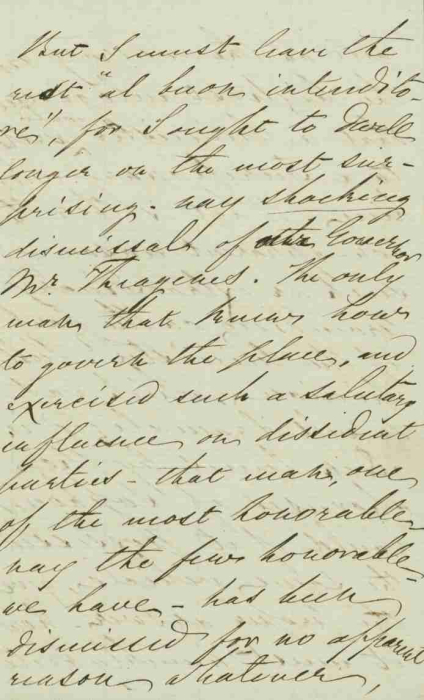 But I must leave the
rest "al buon intendito-
re", for I ought to dwell
longer on the most sur-
prising - nay shocking
dismissal of our Governor
Mr. Thiagenes. The only
man that knows how
to govern the place, and
exercised such a salutary
influence on dissidiat
parties - that man, one
of the most honorable,
nay the few honorable
we have - has been
dismissed for no apparent
reason whatever,